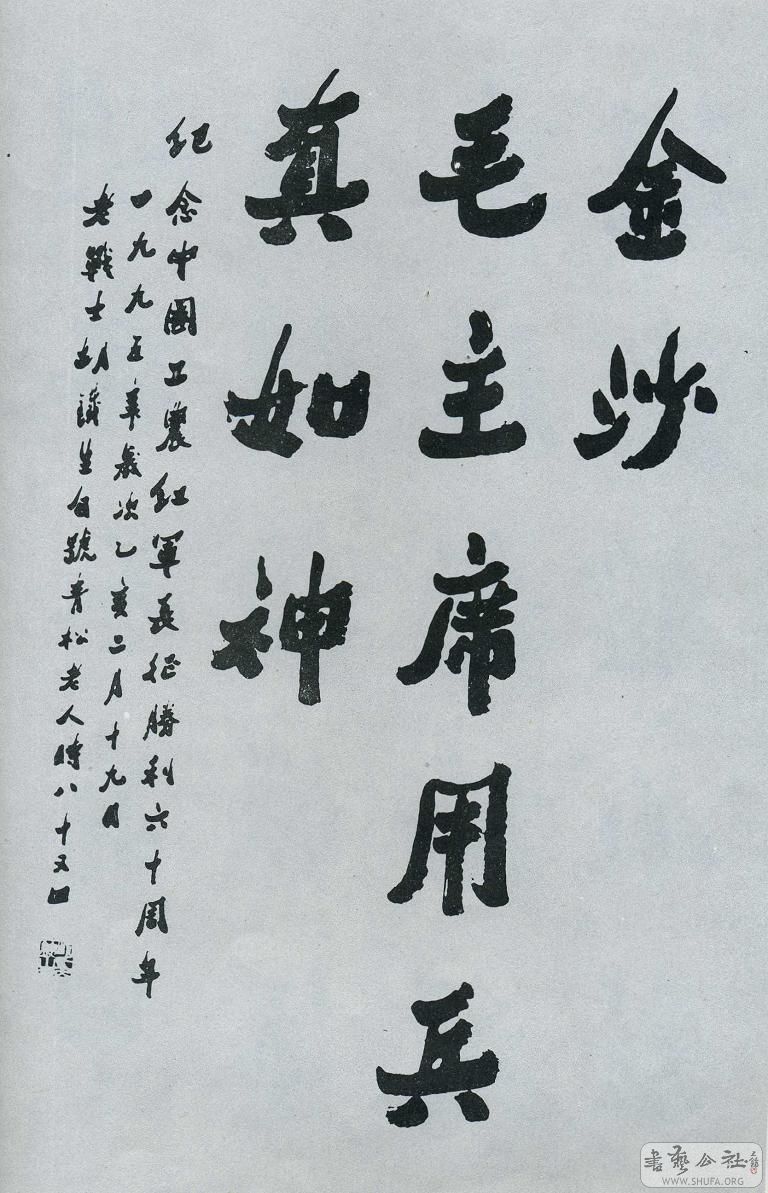 金沙
毛主席用兵
真如神
纪念中國工農红軍長征勝利六十周年
一九九五年歲次乙亥二月十九日
老戰士胡識生自號青松老人時八十又四
書藝公社
WWW.SHUFA.ORG